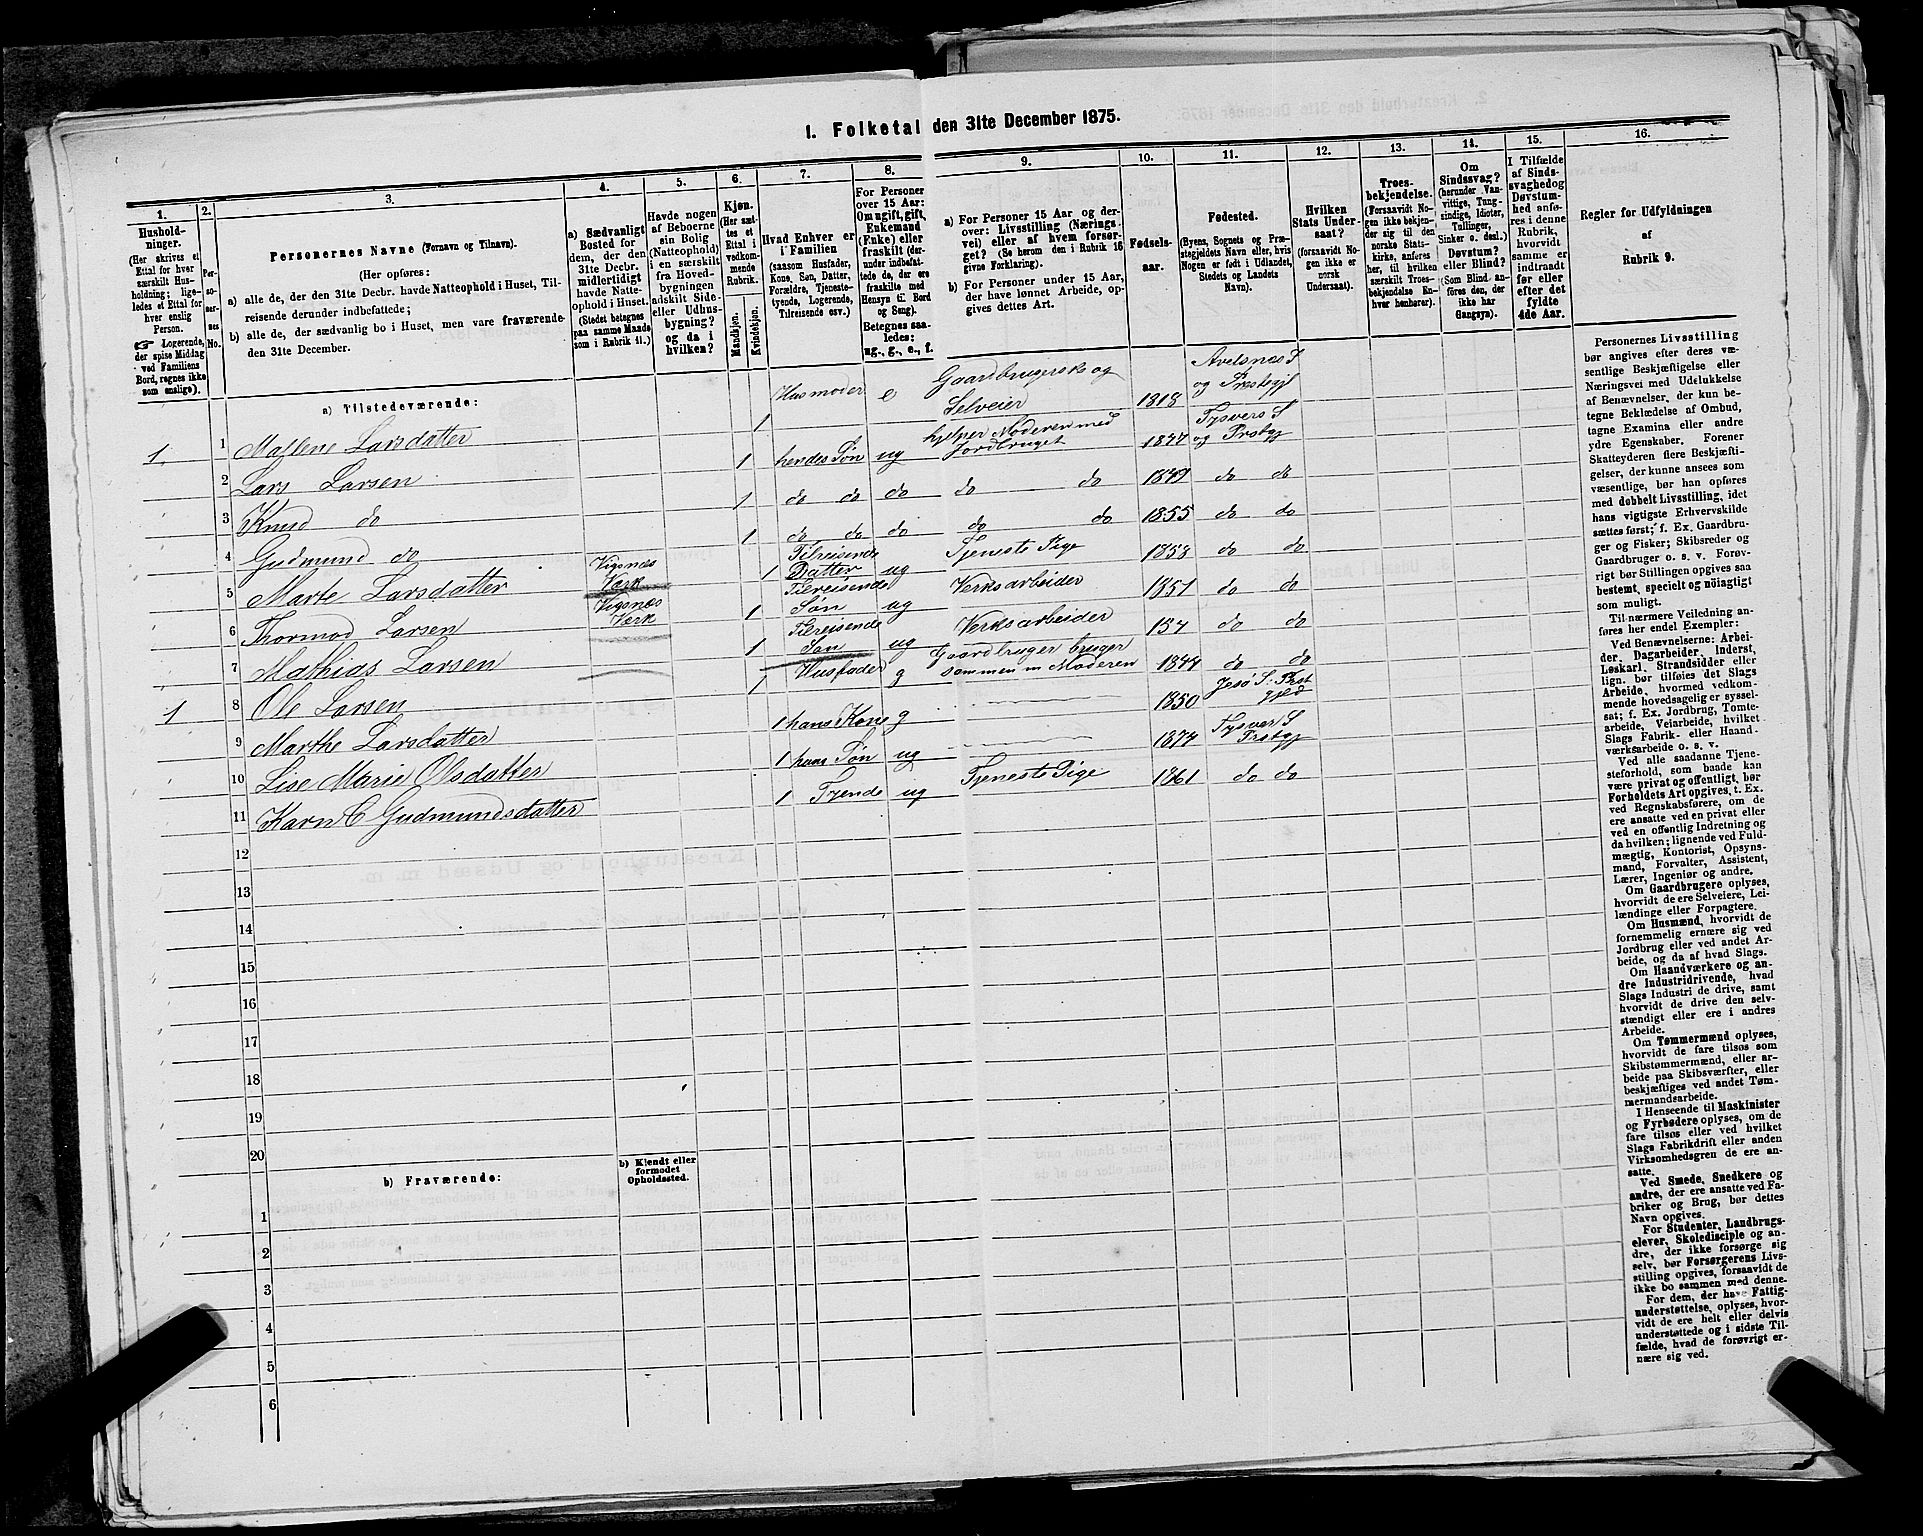 1. Folketal den 31te December 1875.
1. 2. 3. 4. 5. 6. 7. 8. 9. 10. 11. 12. 13. 14. 15. 16.
Hushold-
ninger.
(Her skrives et
Ettal for hver
særskilt Hus-
holdning; lige-
ledes et Ettal for
hver enslig
Person.
☞ Logerende,
der spise Middag
ved Familiens
Bord, regnes ikke
som enslige).
Per-
so-
ner-
nes
No.
Personernes Navne (Fornavn og Tilnavn).
(Her opføres:
a) alle de, der den 31te Decbr. havde Natteophold i Huset, Til-
reisende derunder indbefattede;
b) alle de, der sædvanlig bo i Huset, men vare fraværende
den 31te December.
a) Sædvanligt
Bosted for
dem, der den
31te Decbr.
midlertidigt
havde Natte-
ophold i Huset.
(Stedet betegnes
paa samme Maade
som i Rubrik 11.)
Havde nogen
af Beboerne
sin Bolig
(Natteophold)
i en særskilt
fra Hoved-
bygningen
adskilt Side-
eller Udhus-
bygning?
og da i
hvilken?
Kjøn.
(Her sæt-
tes et
Ettal i
vedkom-
mende
Rubrik.
Mandkjøn.
Kvindekjøn.
Hvad Enhver er
i Familien
(saasom Husfader,
Kone, Søn, Datter,
Forældre, Tjeneste-
tyende, Logerende,
Tilreisende osv.)
For Personer
over 15 Aar:
Om ugift, gift,
Enkemand
(Enke) eller
fraskilt (der-
under indbefat-
tede de, der ere
fraskilte med
Hensyn til Bord
og Seng).
Betegnes saa-
ledes:
ug., g., e., f.
a) For Personer 15 Aar og der-
over: Livsstilling (Nærings-
vei) eller af hvem forsør-
get? (Se herom den i Rubrik 16
givne Forklaring).
b) For Personer under 15 Aar,
der have lønnet Arbeide, op-
gives dettes Art.
Fødsels-
aar.
Fødested.
(Byens, Sognets og Præ-
stegjeldets Navn eller, hvis
Nogen er født i Udlandet,
Stedets og Landets
Navn).
Hvilken
Stats Under-
saat?
(forsaavidt No-
gen ikke er
norsk
Undersaat).
Troes-
bekjendelse.
(Forsaavidt No-
gen ikke bekjen-
der sig til den
norske Stats-
kirke, anføres
her, til hvilken
særskilt Troes-
bekjendelse En-
hver henhører).
Om
Sindssvag?
(herunder Van-
vittige, Tung-
sindige, Idioter,
Tullinger,
Sinker o. desl.)
Døvstum?
eller Blind?
(Som Blind an-
føres den, der
ikke har
Gangsyn).
I Tilfælde
af Sinds-
svaghed og
Døvstum-
hed anfø-
res i denne
Rubrik,
hvorvidt
samme er
indtraadt
før eller
efter det
fyldte
4de Aar.
Regler for Udfyldningen
af
Rubrik 9.
a) Tilstedeværende:
1. 1 Mallene Larsdatter 1 Husmoder e Gaardbrugerske og Selveier 1818 Avelsnæs S og Præstegjl
2 Lars Larsen 1 hendes Søn ug hjelper Moderen med Jordbruget 1847 Tysvers S og Prstgj
3 Knud do 1 do do do do do 1849 do do
4 Gudmund do 1 do do do do do 1855 do do
5 Marte Larsdatter Vigsnæs Verk 1 Tilreisende Datter ug Tjeneste Pige 1858 do do
6 Thormod Larsen Vigsnæs Verk 1 Tilreisende Søn ug Verksarbeider 1851 do do
7 Mathias Larsen 1 Tilreisende Søn ug Verksarbeider do do
1 8 Ole Larsen 1 Husfader g Gaardbruger bruger sammen m Moderen 1844 do do
9 Marthe Larsdatter 1 hans Kone g 1850 S. Prst gjed
10 Lise Marie Olsdatter 1 hans Søn ug 1874 Tysvær S Prstgj
11 Karn C Gudmundsdatter 1 Tyende ug Tjeneste Pige 1861 do do
12
13
14
15
16
17
18
19
20
b) Fraværende:
b) Kjendt eller
formodet
Opholdssted.
1
2
3
4
5
6
Personernes Livsstilling
bør angives efter deres væ-
sentlige Beskjæftigelse eller
Næringsvei med Udelukkelse
af Benævnelser, der kun be-
tegne Beklædelse af Ombud,
tagne Examina eller andre
ydre Egenskaber. Forener
Skatteyderen flere Beskjæfti-
gelser, der kunne ansees som
væsentlige, bør han opføres
med dobbelt Livsstilling, idet
hans vigtigste Erhvervskilde
sættes først; f. Ex. Gaardbru-
ger og Fisker; Skibsreder og
Gaardbruger o. s. v. Forøv-
rigt bør Stillingen opgives saa
bestemt, specielt og nøiagtigt
som muligt.
Til nærmere Veiledning an-
føres her endel Exempler:
Ved Benævnelserne: Arbei-
der, Dagarbeider, Inderst,
Løskarl, Strandsidder eller
lign. bør tilføies det Slags
Arbeide, hvormed vedkom-
mende hovedsagelig er syssel-
sat; f. Ex. Jordbrug, Tomte-
arbeide, Veiarbeide, hvilket
Slags Fabrik- eller Haand-
værksarbeide o. s. v.
Ved alle saadanne Tjene-
steforhold, som baade kan
være privat og offentligt, bør
Forholdets Art opgives, t. Ex.
ved Regnskabsførere, om de
ere ansatte ved en privat eller
ved en offentlig Indretning og
da hvilken; lignende ved Fuld-
mægtig, Kontorist, Opsyns-
mand, Forvalter, Assistent,
Lærer, Ingeniør og andre.
Om Gaardbrugere oplyses,
hvorvidt de ere Selveiere, Lei-
lændinge eller Forpagtere.
Om Husmænd, hvorvidt de
fornemmelig ernære sig ved
Jordbrug eller ved andet Ar-
beide, og da af hvad Slags.
Om Haandværkere og an-
dre Industridrivende, hvad
Slags Industri de drive, samt
hvorvidt de drive den selv-
stændigt eller ere i andres
Arbeide.
Om Tømmermænd oplyses,
hvorvidt de fare tilsøs som
Skibstømmermænd, eller ar-
beide paa Skibsværfter, eller
beskjæftiges ved andet Tøm-
mermandsarbeide.
I Henseende til Maskinister
og Fyrbødere oplyses, om de
fare tilsøs eller ved hvilket
Slags Fabrikdrift eller anden
Virksomhedsgren de ere an-
satte.
Ved Smede, Snedkere og
andre, der ere ansatte ved Fa-
briker og Brug, bør dettes
Navn opgives.
For Studenter, Landbrugs-
elever, Skoledisciple og an-
dre, der ikke forsørge sig
selv, bør Forsørgerens Livs-
stilling opgives, forsaavidt de
ikke bo sammen med denne.
For dem, der have Fattig-
understøttelse, oplyses, hvor-
vidt de ere helt eller delvis
understøttede og i sidste Til-
fælde, hvad de forøvrigt er-
nære sig ved.